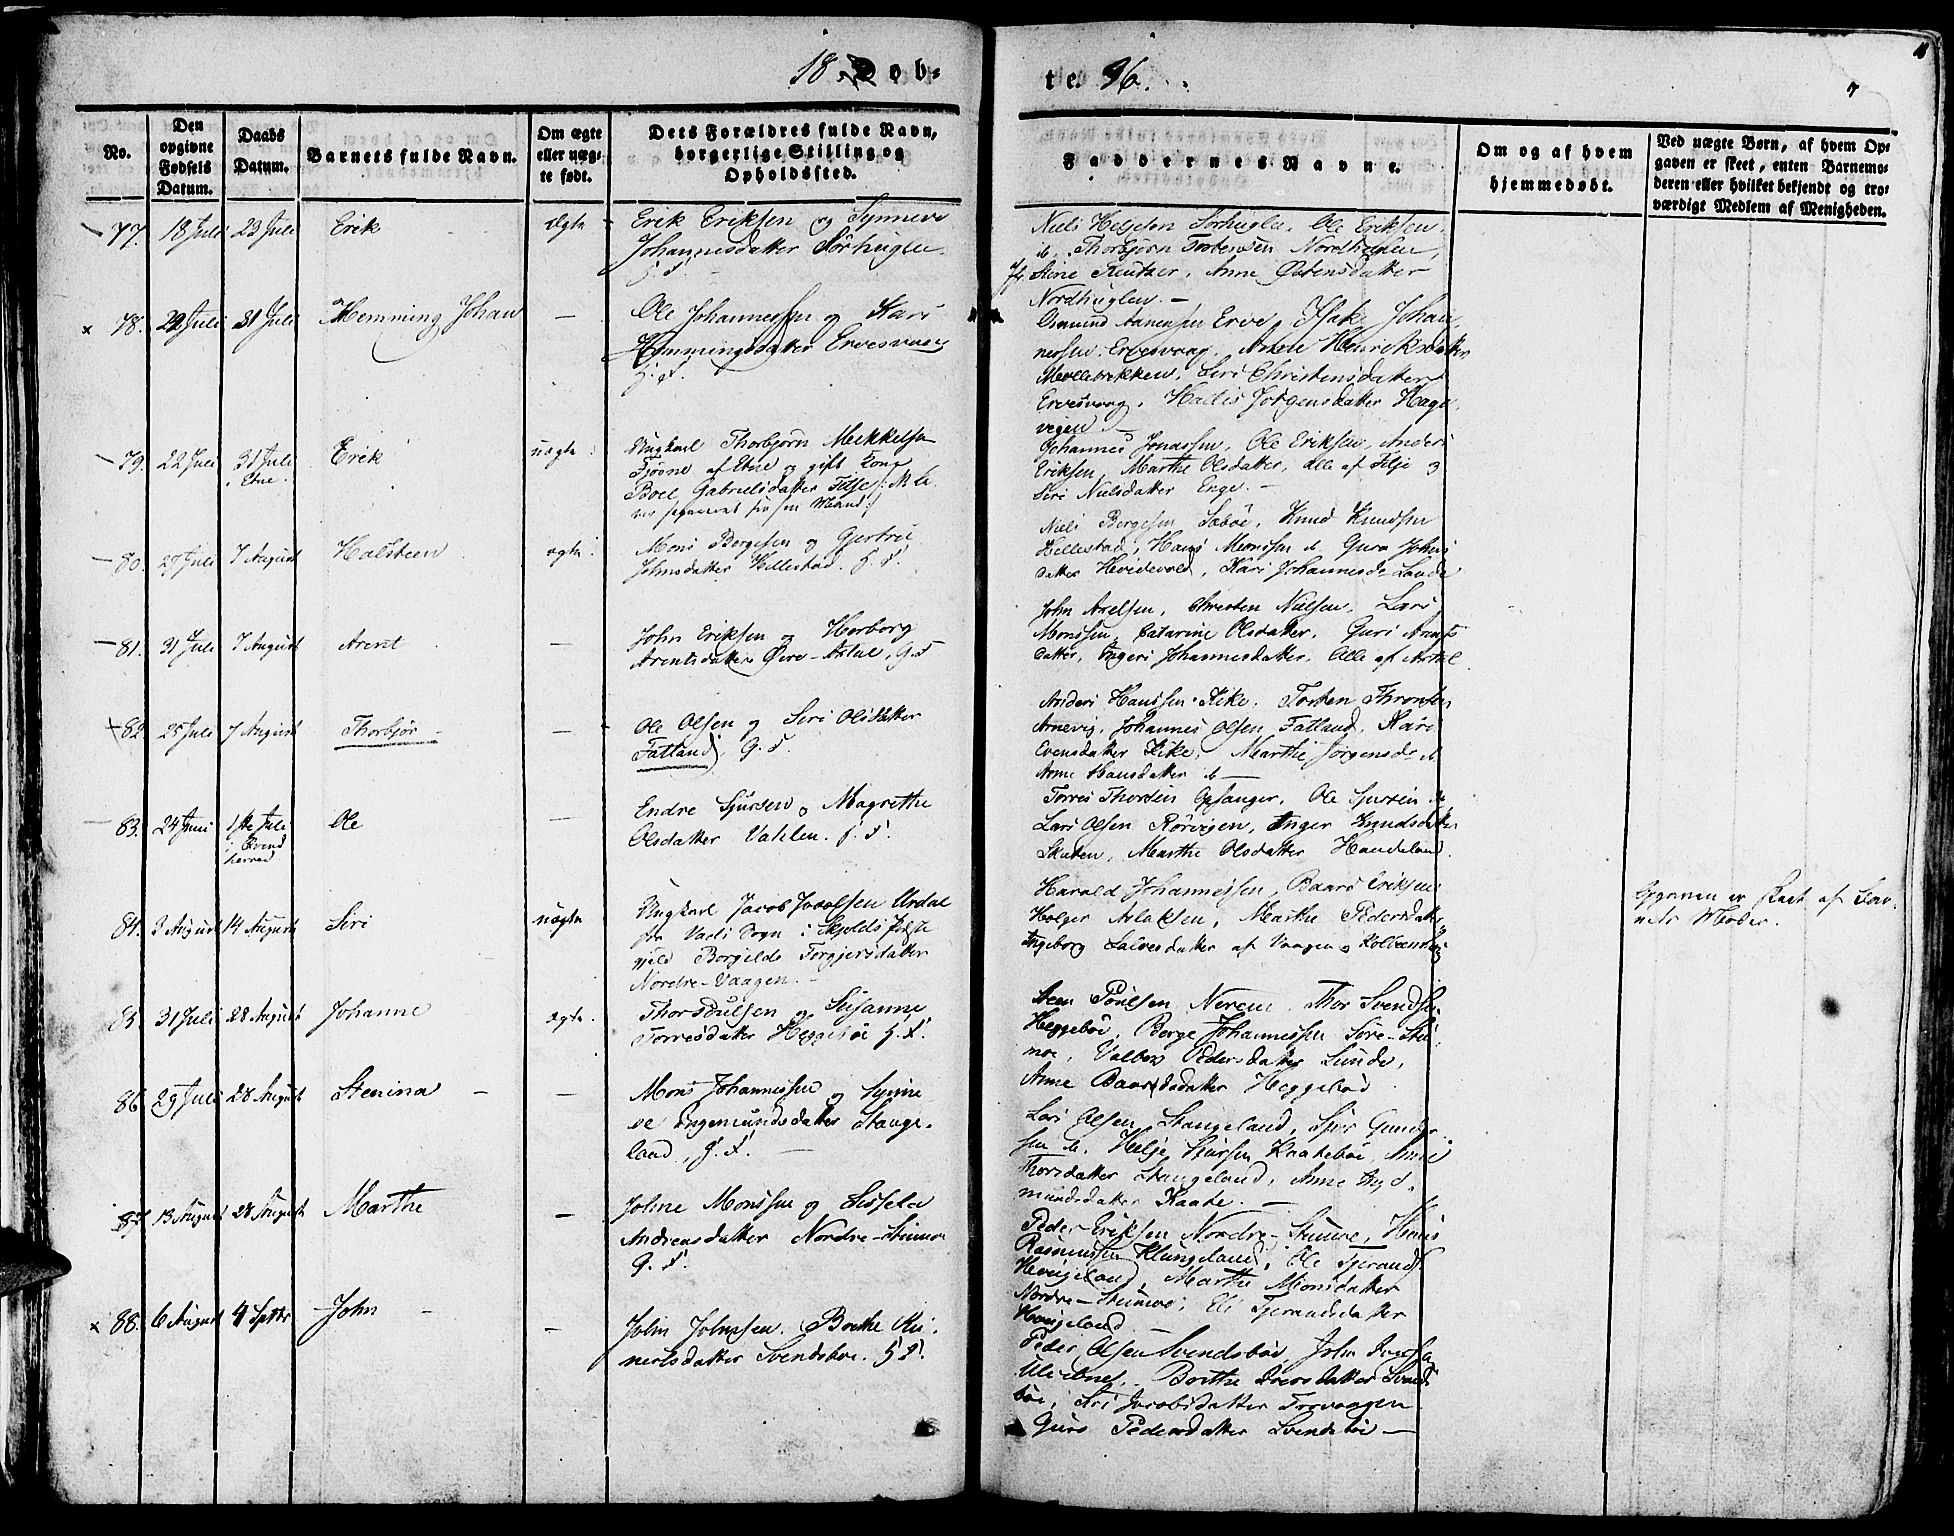 18 Døb-
te. 36.
7
No.
Den opgivne Fødsels Datum.
Daabs Datum.
Barnets fulde Navn.
Om ægte eller uæg- te født.
Dets Forældres fulde Navn, borgerlige Stilling og Opholdssted.
Faddernes Navne.
Om og af hvem hjemmedøbt.
Ved uægte Børn, af hvem Op- gaven er skeet, enten Barnemo- deren eller hvilket bekjendt og tro- værdigt Medlem af Menigheden.
77. 18 Juli 23 Juli Erik Ægte
Erik Eriksen og Synneve
Johannesdatter Sørhuglen
Niels Helgesen Sørhuglen, Ole Eriksen
Thorbjørn Torbensen Nordhuglen,
Anne Østensdatter
Nordhuglen. —
78. 29 Juli 31 Juli Hemming Johan —
Ole Johannessen og Kari
Hemmingsdatter Ervesvaag
G. F.
Osmund Aanensen Erve, Isak Johan-
nessen Ervesvaag, Henriksdatter
Siri Christensdatter
Ervesvaag, Jørgensdatter Hage-
vigen. —
79. 22 Juli 31 Juli i Etne. Erik uægte
Ungkarl Thorbjørn Mikkelsen
af Etne og gift Kone
Boel Gabrielsdatter Silje
Johannes Jonassen, Ole Eriksen, Anders
Eriksen, Marthe Olsdatter, alle af Silje og
Siri Nielsdatter Enge. —
80. 27 Juli 7 August Halsteen ægte
Mons Børgesen og Gjertrud
Johnsdatter Hillestad. G. F.
Niels Børgesen Sæbøe, Knud Knudsen
Hillestad, Hans Monsen do Guro Johns
datter Kari Johannesd. Lande
81. 31 Juli 7 August Arent —
John Eriksen og Herborg
Arentsdatter Øvre-Astal. G. F.
John Axelsen, Christen Nielsen, Lars
Monssen, Catarine Olsdatter, Guri Arents
datter, Ingeri Johannesdatter, Alle af Astal
82. 25 Juli 7 August Thorbjør —
Ole Olsen og Siri Olsdatter
Fatland, G. F.
Anders Hanssen Kike, Torsten Thronsen
Arnevig, Johannes Olsen Fatland, Kari
Evensdatter Kike, Marthe Jørgensd. do
Anne Hansdatter do —
83. 24 Juni 1ste Juli i Qvindherred Ole —
Endre Sjursen og Magrethe
Olsdatter Vahlen. G. F.
Torres Thorsen Opsanger, Ole Sjursen do
Lars Olsen Rørvigen, Inger Knudsdatter
Skaten, Marthe Olsdatter Handeland.
84. 3 August 14 August Siri uægte
Ungkarl Jacob Jacobsen Urdal
fra Vads Sogn i Skjolds Præste
gjeld Borgilde Torgjersdatter
Nordre-Vaagen. —
Harald Johannessen, Baard Eriksen
Holger Aslaksen, Marthe Pedersdatter
Ingeborg Salvesdatter af Vaagen og
Opgaven er skeet af Bar-
nets Moder.
85. 31 Juli 28 August Johanne ægte
Thor Poulsen og Susanne
Torresdatter Heggebøe G. F.
Sten Poulsen Nerem, Thor Svendsen
Heggebøe, Børge Johannessen Søre-Stu-
moe, Valbor Pedersdatter Lunde,
Anne Baardsdatter Heggeland
86. 29 Juli 28 August Stenina —
Mons Johannessen og Synne-
ve Ingemundsdatter Stange-
land, G. F. —
Lars Olsen Stangeland, Sjur Gunder-
sen do, Helje Sjursen Kaatebøe, Anne
Thorsdatter Stangeland, Anne
mundsdatter Kaate. —
87. 13 August 28 August Marthe —
Johne Monssen og Sissela
Andreasdatter Nordre-Stumoe
G. F.
Peder Eriksen Nordre-Stumoe, Hans
Rasmussen Klungeland, Ole Tjerands.
Hougeland, Marthe Monsdatter
Nordre-Stumoe, Eli Tjerandsdatter
Hougeland —
88. 6 August 4 Septbr John —
John Johnsen, Brethe Rei-
nertsdatter Svendsbøe. G. F.
Peder Olsen Svendsbøe, John Iversen
Brithe Iversdatter Svends
bøe, Siri Jacobsdatter Trovaagen
Guro Pedersdatter Svendsbøe —